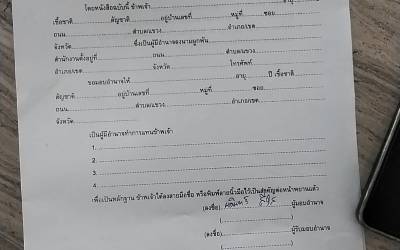 โดยหนังสือฉบับนี้ ข้าพเจ้า............อายุ.........ปี
เชื้อชาติ............สัญชาติ............อยู่บ้านเลขที่............หมู่ที่............ซอย............
ถนน............ตำบล/แขวง............อำเภอ/เขต............
จังหวัด............ซึ่งเป็นผู้มีอำนาจลงนามผูกพัน............
สำนักงานตั้งอยู่ที่............ถนน............ตำบล/แขวง............
อำเภอ/เขต............จังหวัด............โทรศัพท์............
ขอมอบอำนาจให้............อายุ.........ปี เชื้อชาติ............
สัญชาติ............อยู่บ้านเลขที่............หมู่ที่............ซอย............
ถนน............ตำบล/แขวง............อำเภอ/เขต............
จังหวัด............
เป็นผู้มีอำนาจทำการแทนข้าพเจ้า
1.............
2.............
3.............
4.............
เพื่อเป็นหลักฐาน ข้าพเจ้าได้ลงลายมือชื่อ หรือพิมพ์ลายนิ้วมือไว้เป็นสำคัญต่อหน้าพยานแล้ว
(ลงชื่อ)............ผู้มอบอำนาจ
(............)
(ลงชื่อ)............ผู้รับมอบอำนาจ